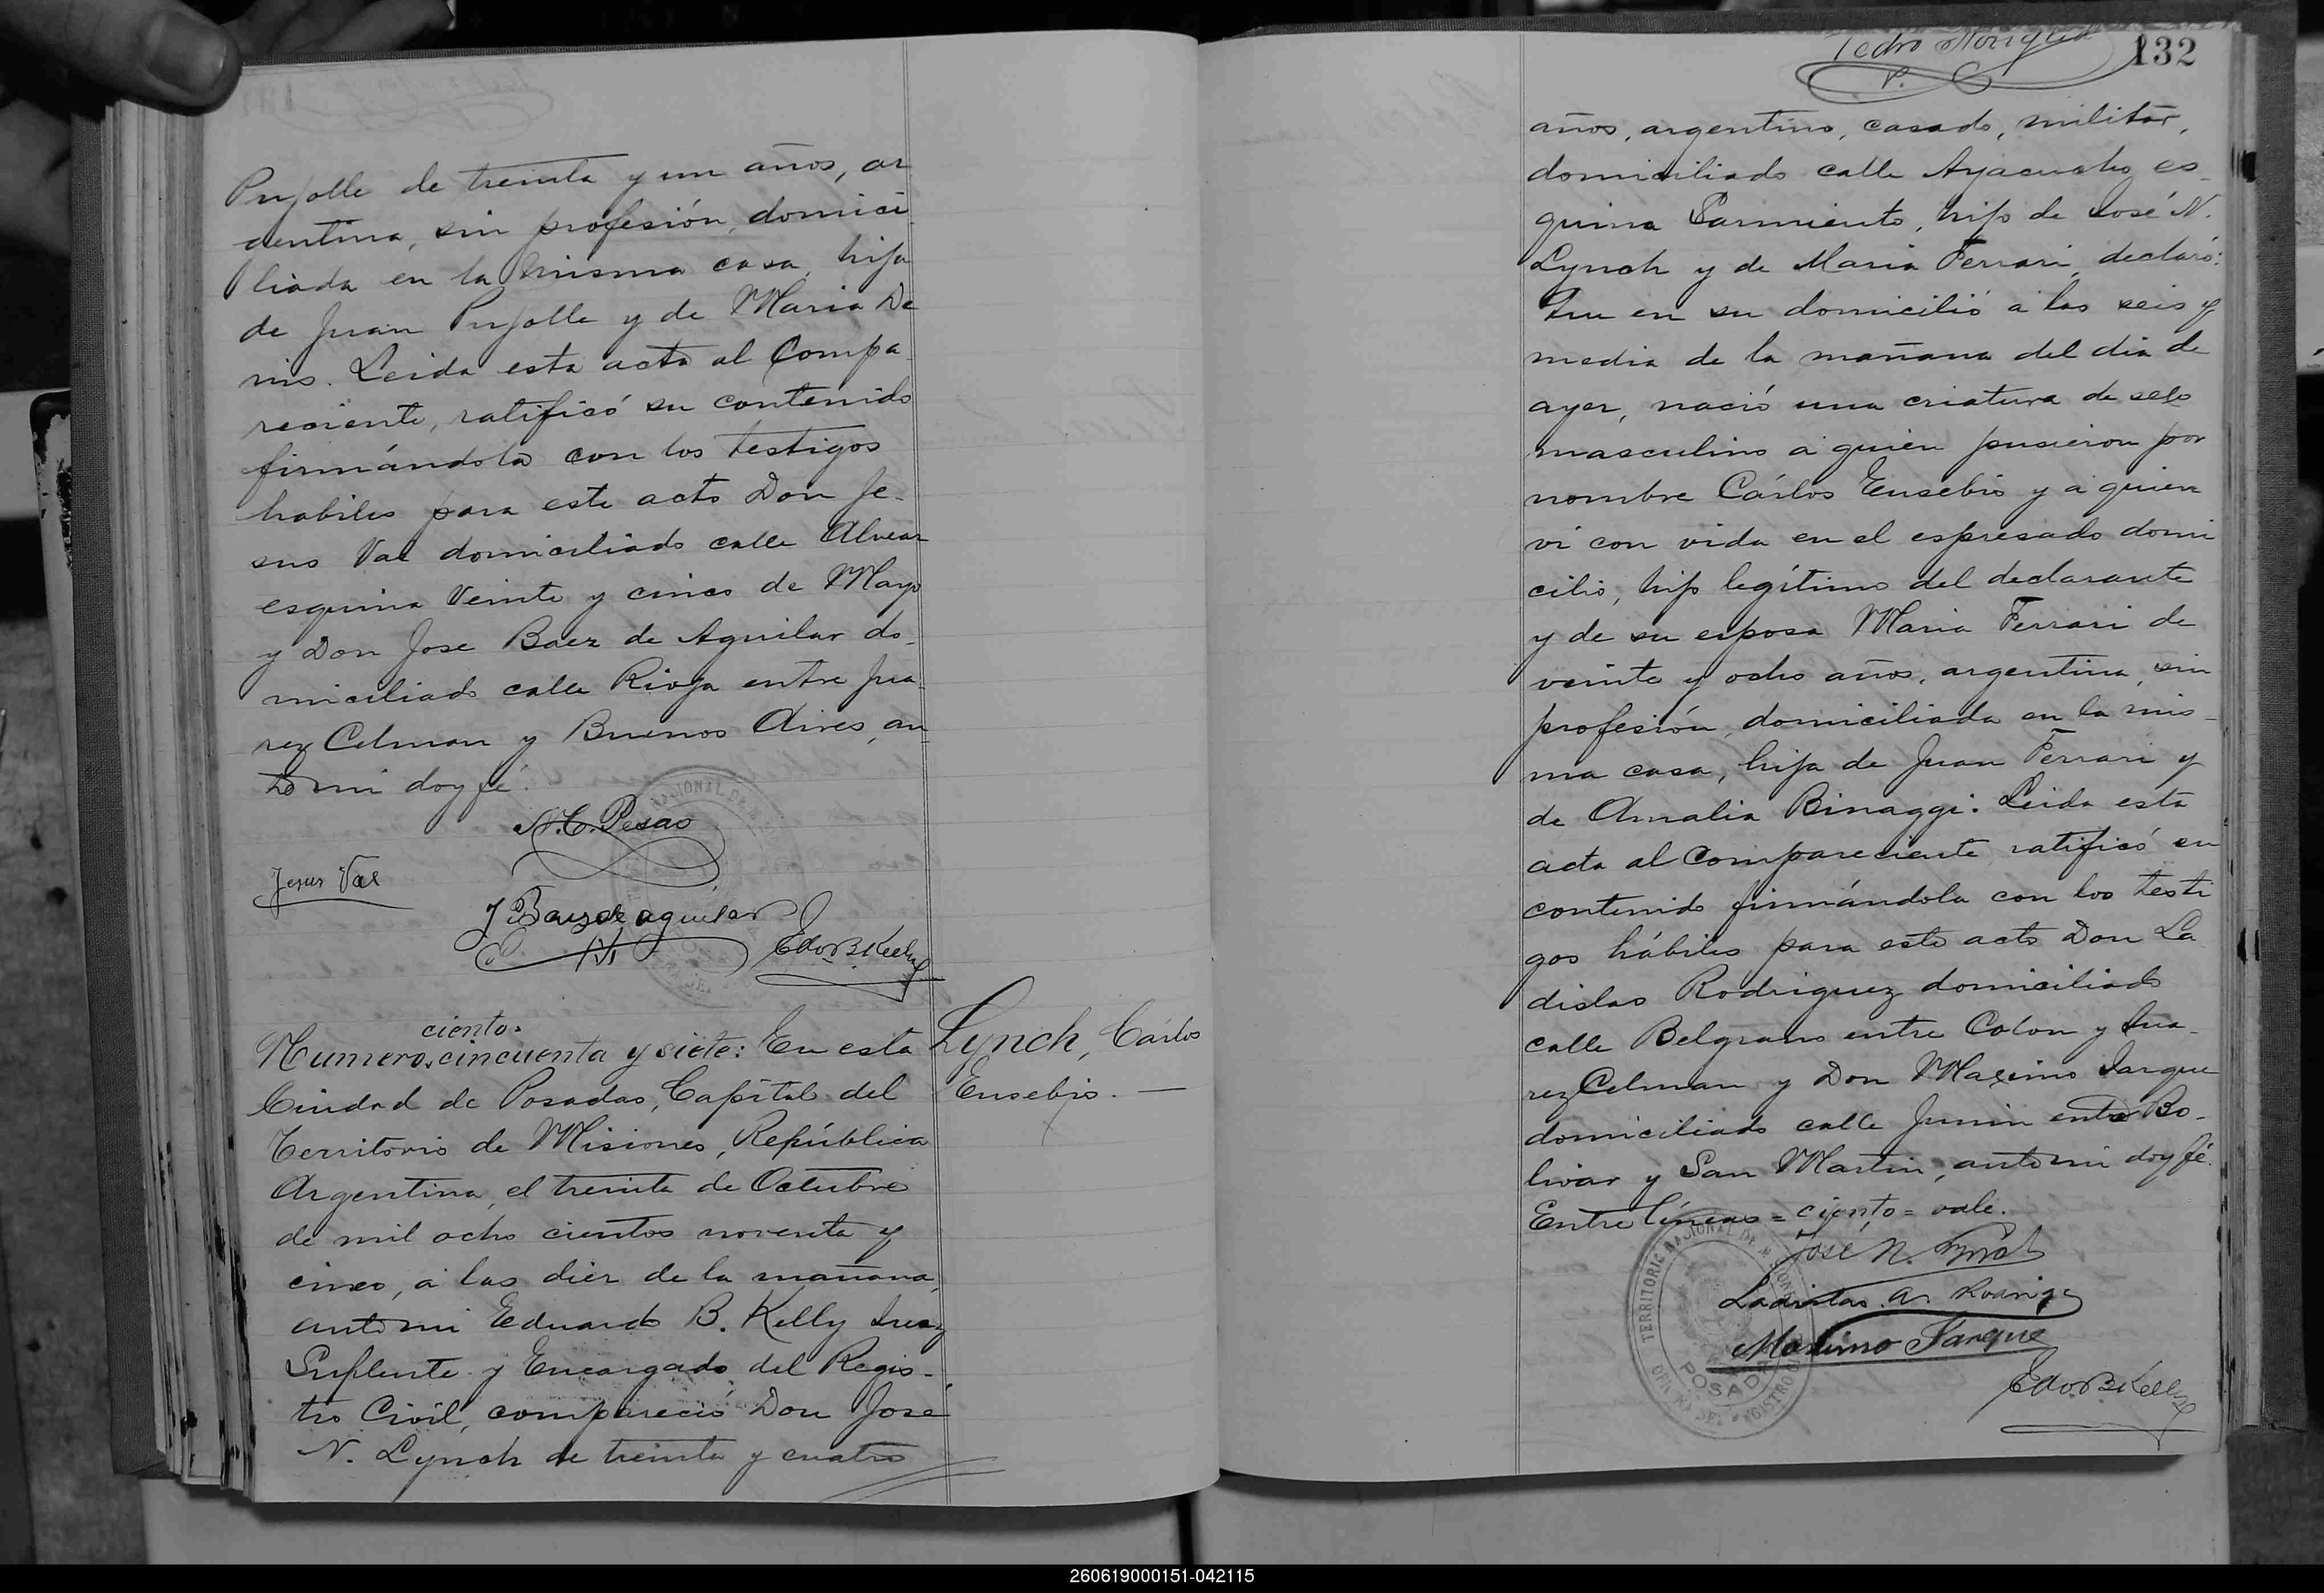 Pujolle de treinta y un años, ar
gentina, sin profesión, domici
liada en la misma casa, hija
de Juan Pujolle y de Maria De
nis. Leida esta acta al Compa
reciente, ratificó su contenido
firmándola con los testigos
habiles para este acto Don Je-
sus Val domiciliado calle Alvear
esquina Veinte y cinco de Mayo
y Don Jose Baez de Aguilar do-
miciliado calle Rioja entre Jua-
rez Celman y Buenos Aires, an
te mi doy fé.
N. C. Pesao
Jesus Val
J Baez de aguilar
Edo B Kelly
ciento.
Numero cincuenta y siete: En esta
Ciudad de Posadas, Capital del
Territorio de Misiones, República
Argentina, el treinta de Octubre
de mil ocho cientos noventa y
cinco, a las diez de la mañana,
ante mi Eduardo B. Kelly Juez
Suplente y Encargado del Regis-
tro Civil, compareció Don José
N. Lynch de treinta y cuatro
Lynch, Cárlos
Eusebio. —
Pedro
132
años, argentino, casado, militar,
domiciliado calle Ayacucho es-
quina Sarmiento, hijo de José N.
Lynch y de Maria Ferrari, declaró:
Que en su domicilio á las seis y
media de la mañana del dia de
ayer, nació una criatura de seso
masculino á quien pusieron por
nombre Cárlos Eusebio y á quien
vi con vida en el espresado domi
cilio, hijo legítimo del declarante
y de su esposa Maria Ferrari de
veinte y ocho años, argentina, sin
profesión, domiciliada en la mis-
ma casa, hija de Juan Ferrari y
de Amalia Binaggi. Leida esta
acta al Compareciente ratificó su
contenido firmándola con los testi
gos hábiles para este acto Don La
dislao Rodriguez domiciliado
calle Belgrano entre Colon y Jua-
rez Celman y Don Maximo Jarque
domiciliado calle Junin entre Bo-
livar y San Martin, ante mi doy fé.
Entre líneas = ciento = vale.
José N. Lynch
Ladislao A. Rodrigz
Maximo Jarque
Edo B Kelly
TERRITORIO NACIONAL DE MISIONES
OFICINA DEL REGISTRO CIVIL
POSADAS
260619000151-042115